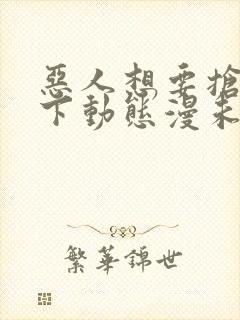 惡人想要搶
下動態漫未
繁華錦世